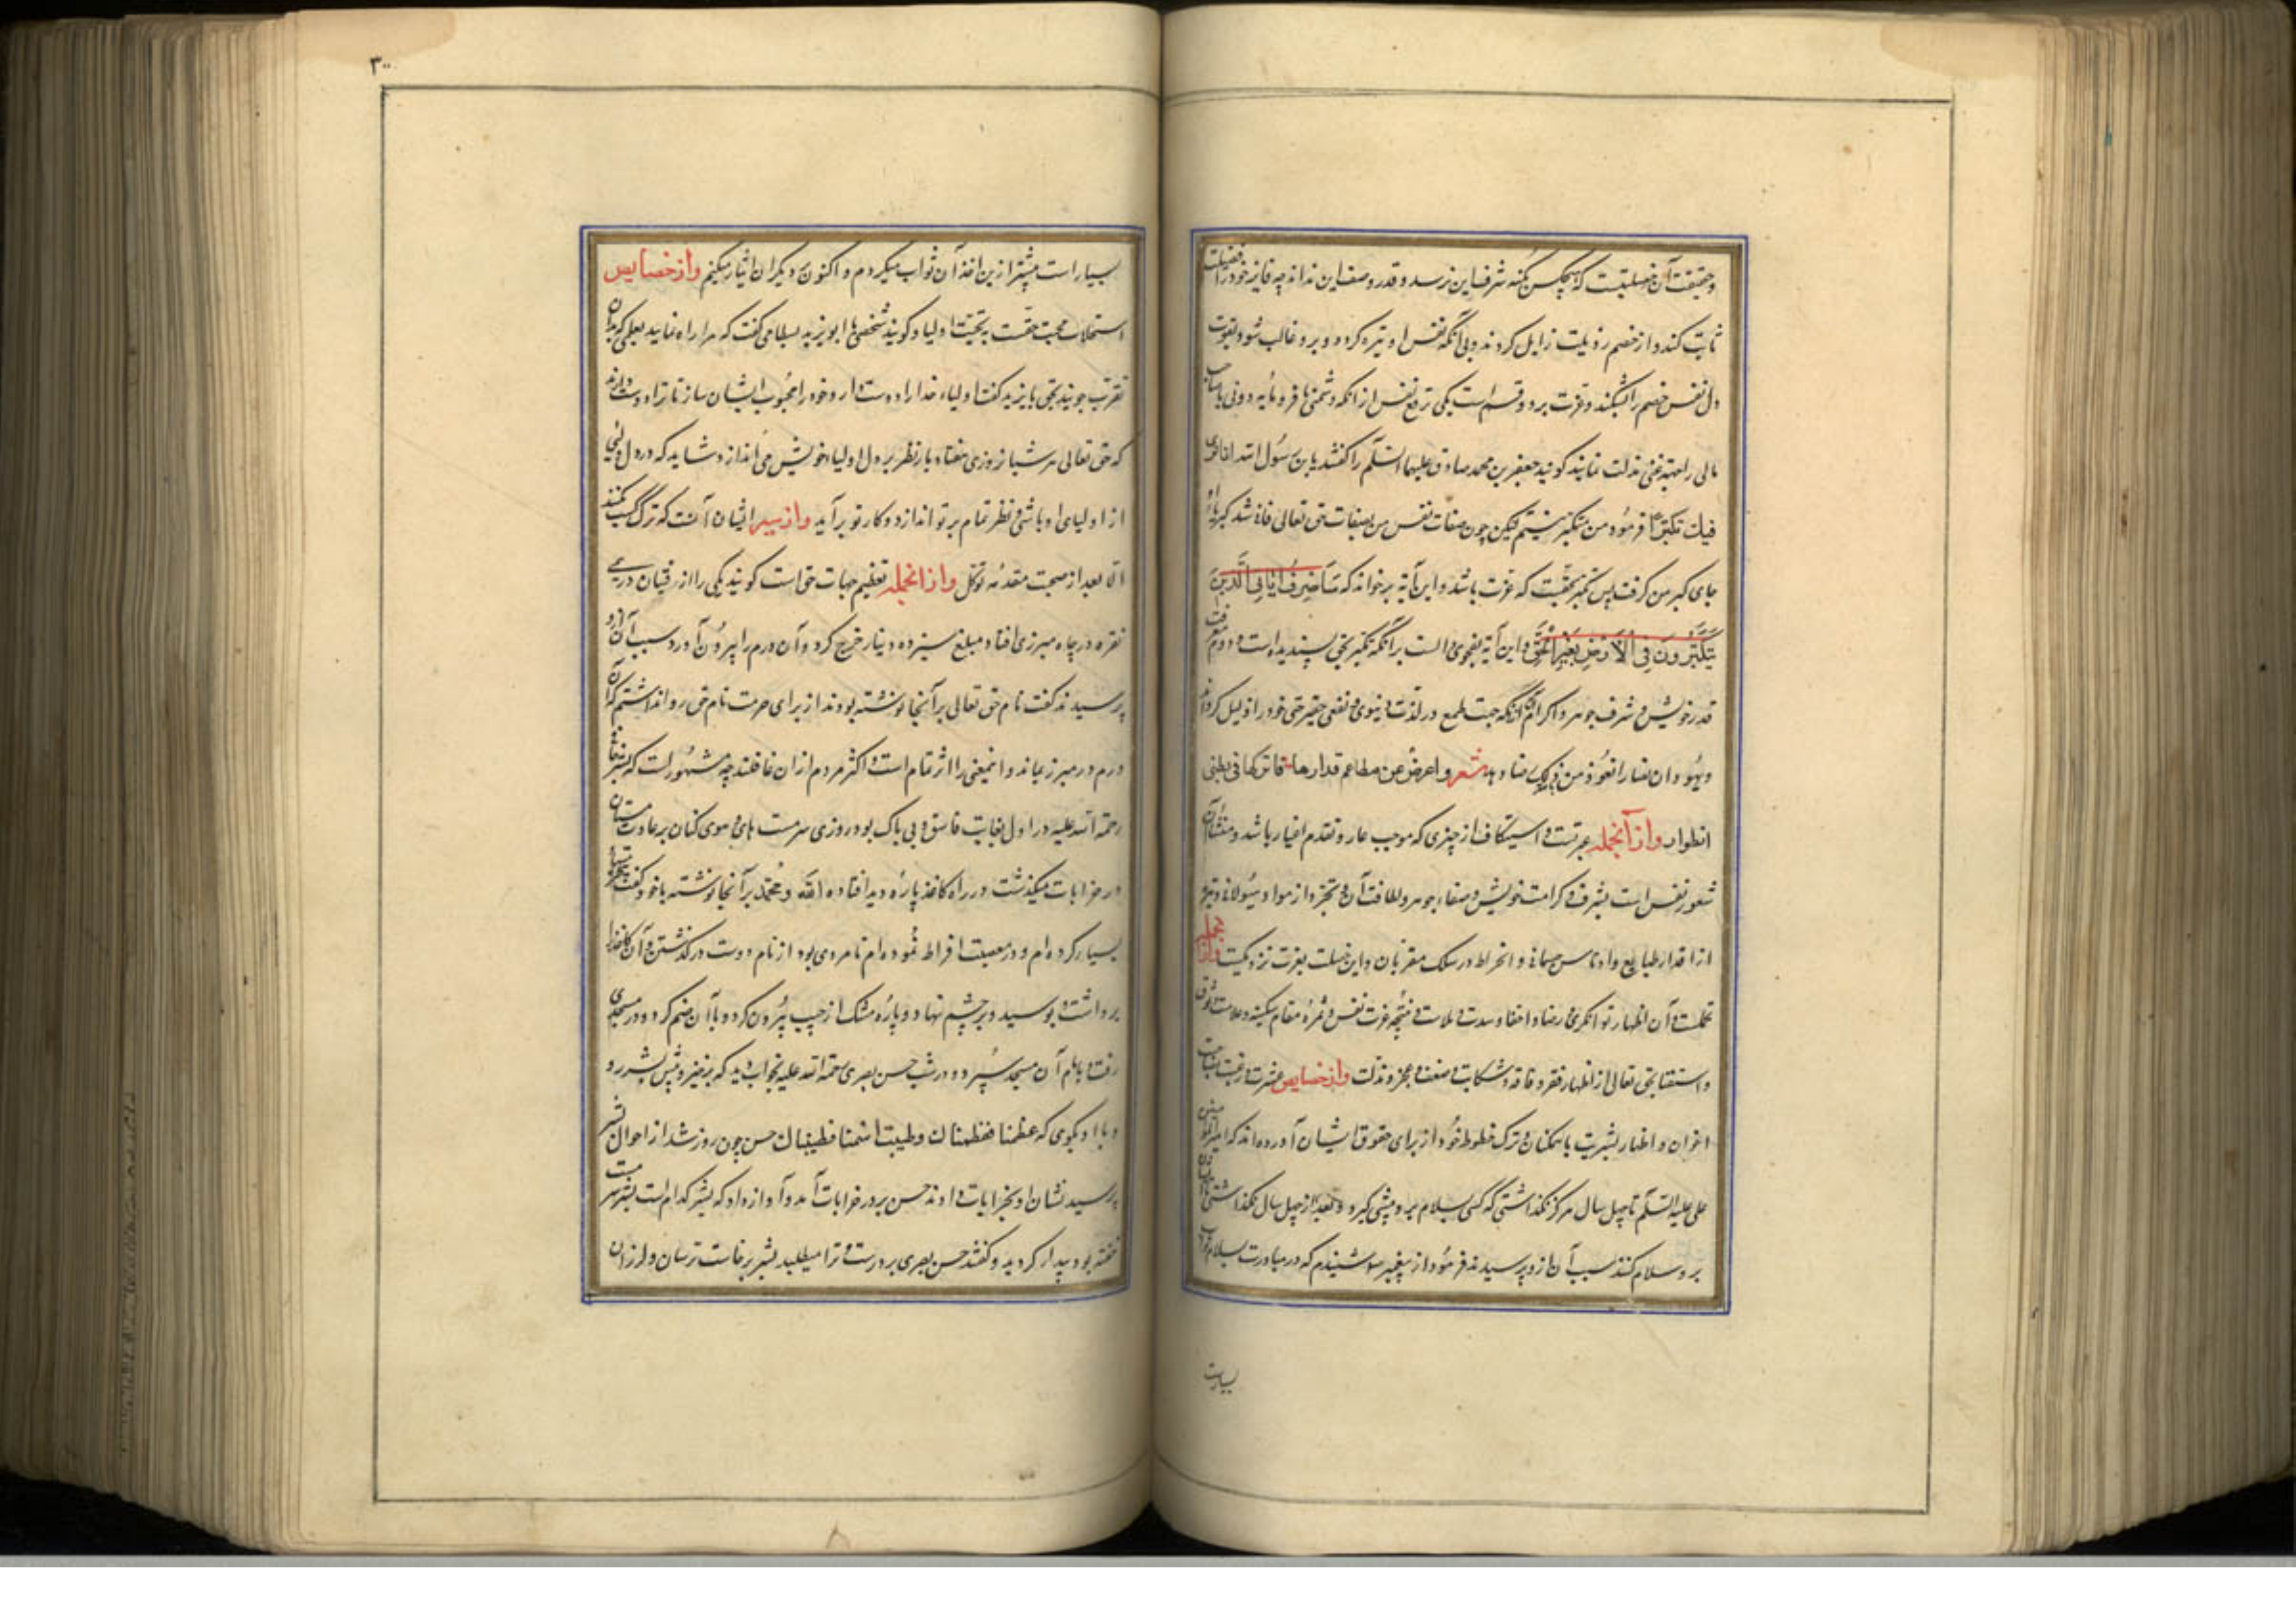 و حقیقت آن خصلتیست که هیچکس بکنه شرف این نرسد و قدر وصف این نداند چه فایز خود را فضیلت
ثابت کند و از خصم رذیلت زایل کردند و بی آنکه نفس او تیره کردد و برو غالب شود بقوت
دل نفس خصم را بشکند و عزت بر دو قسم است یکی ترفع نفس از آنکه دشمنی با فرومایه و دونی با صاحب
مالی را بجهة غنی مذلت نمایند کویند جعفر بن محمد صادق علیهما السلم را کفتند یابن رسول الله انا نری
فیك تکبرًا فرمود من متکبر نیستم لیکن چون صفات نفس من بصفات حق تعالی فانی شد کبریاء او
جای کبر من کرفت پس تکبر بحقیقت که عزت باشد و این آیه برخواند که سَاَصْرِفُ اٰیٰاتِی الَّذِینَ
یَتَکَبَّرُونَ فِی الْاَرْضِ بِغَیْرِ الْحَقِّ و این آیه بفحوی دالست بر آنکه تکبر بحق پسندیده است و دوم معرفت
قدر خویش و شرف جوهر و اکرام آنکه بجهت طمع در لذت دنیوی و نفعی حقیر حق خود را ذلیل کرداند
و یهود ان نصارا نعوذ من ذلک شعر و اعرض عن مطاعم قدارها فاترکها فی بطنی
انطواء وازانجمله غیرتست و استنکاف از چیزی که موجب عار و تقدم اغیار باشد و منشأ آن
شعور نفس است بشرف و کرامت خویش و صفاء جوهر و لطافت آن و تجرد از مواد هیولانی و تنزه
از اقذار طبایع و ادناس جسمانی و انخراط در سلک مقربان و این خصلت بعزت نزدیکست وازانجمله
تجملست و آن اظهار توانکری و رضا و اخفاء و سدت و ملالت و نتیجه عزت نفس و ثمره مقام سکینه و علامت وثوق
و استغنا بحق تعالی از اظهار فقر و فاقه و شکایت و ضعف و عجز و مذلت وازخصایص عشرت و رغبت بصحبت
اخوان و اظهار بشریت با همکنان و ترک حظوظ خود از برای حقوق ایشان آورده‌اند که امیر المؤمنین
علی علیه السلم تا چهل سال هرکز نکذاشتی که کسی بسلام برو پیشی کیرد و بعد از چهل سال نکذاشتی
برو سلام کنند سبب آن ازو پرسیدند فرمود از پیغمبر شنیدم که در مبادرت بسلام ثواب
بسیارست
٣٠
بسیار است پیشتر ازین اخذ آن ثواب میکردم و اکنون بر دیکران ایثار میکنم وازخصایص
استجلاب محبت حقست به تحیت اولیا و کویند شخصی با ابویزید بسطامی کفت که مرا راه نمایید بعلمی که بدان
تقرب جویند بحق بایزید کفت اولیاء خدا را دوست دار و خود را محبوب ایشان ساز تا ترا دوست دارند
که حق تعالی هر شبانروزی هفتاد بار نظر بر دل اولیاء خویش می‌اندازد شاید که در دل ولیی
از اولیای او باشی و نظر تمام بر تو اندازد و کار تو برآید وازسیر ایشان آنست که ترک کسب نکنند
الا بعد از صحبت مقدمه توکل وازانجمله تعظیم جهات حق است کویند یکی را از رفیقان درمی
نقره در چاه مبرزی افتاد مبلغ سیزده دینار خرج کرد و آن درم را بیرون آورد سبب آن ازو
پرسیدند کفت نام حق تعالی بر آنجا نوشته بودند از برای حرمت نام حق روا نداشتم که آن
درم در مبرز بماند و اینمعنی را اثر تمام است و اکثر مردم از ان غافلند چه مشهورست که بشر حافی
رحمة الله علیه در اول بغایت فاسق و بی باک بود روزی سرمست های و هوی کنان بر عادت مستان
در خرابات میکذشت در راه کاغذ پاره دید افتاده الله و محمد بر آنجا نوشته با خود کفت
بسیار کرده‌ام و در معصیت افراط نموده‌ام نامردی بود از نام دوست درکذشتن و آن کاغذ را
برداشت و بوسید و بر چشم نهاد و پاره مشک از جیب بیرون کرد و با آن ضم کرد و در مسجدی
رفت و بامام آن مسجد سپرد و در شب حسن بصری رحمة الله علیه بخواب دید که برخیز و پیش بشر رو
و با او بکوی که عظمتنا فعظمناك وطیبت اسمنا فطیبناك حسن چون روز شد از احوال بشر
پرسید نشان او بخرابات دادند حسن بر در خرابات آمد و آواز داد که بشر کدام است بشر سرمست
خفته بود بیدار کردید و کفتند حسن بصری بر درست و ترا میطلبد بشر برخاست ترسان و لرزان